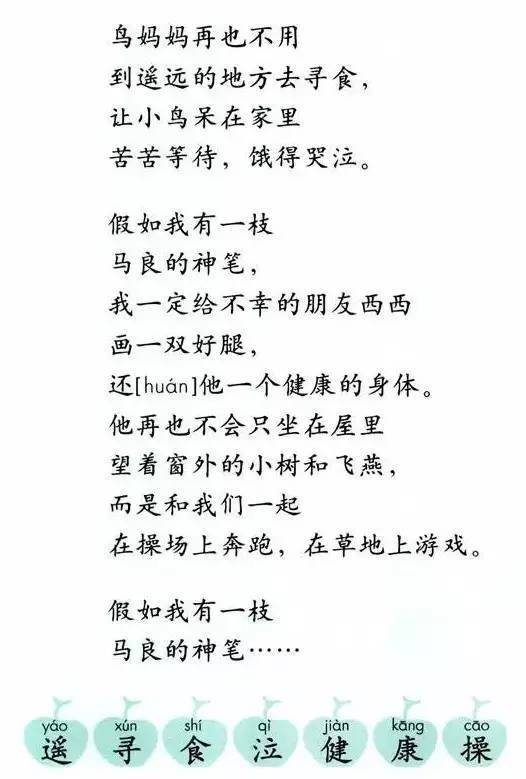 鸟妈妈再也不用
到遥远的地方去寻食，
让小鸟呆在家里
苦苦等待，饿得哭泣。
假如我有一枝
马良的神笔，
我一定给不幸的朋友西西
画一双好腿，
还[huán]他一个健康的身体。
他再也不会只坐在屋里
望着窗外的小树和飞燕，
而是和我们一起
在操场上奔跑，在草地上游戏。
假如我有一枝
马良的神笔……
yáo xún shí qì jiàn kāng cāo
遥 寻 食 泣 健 康 操